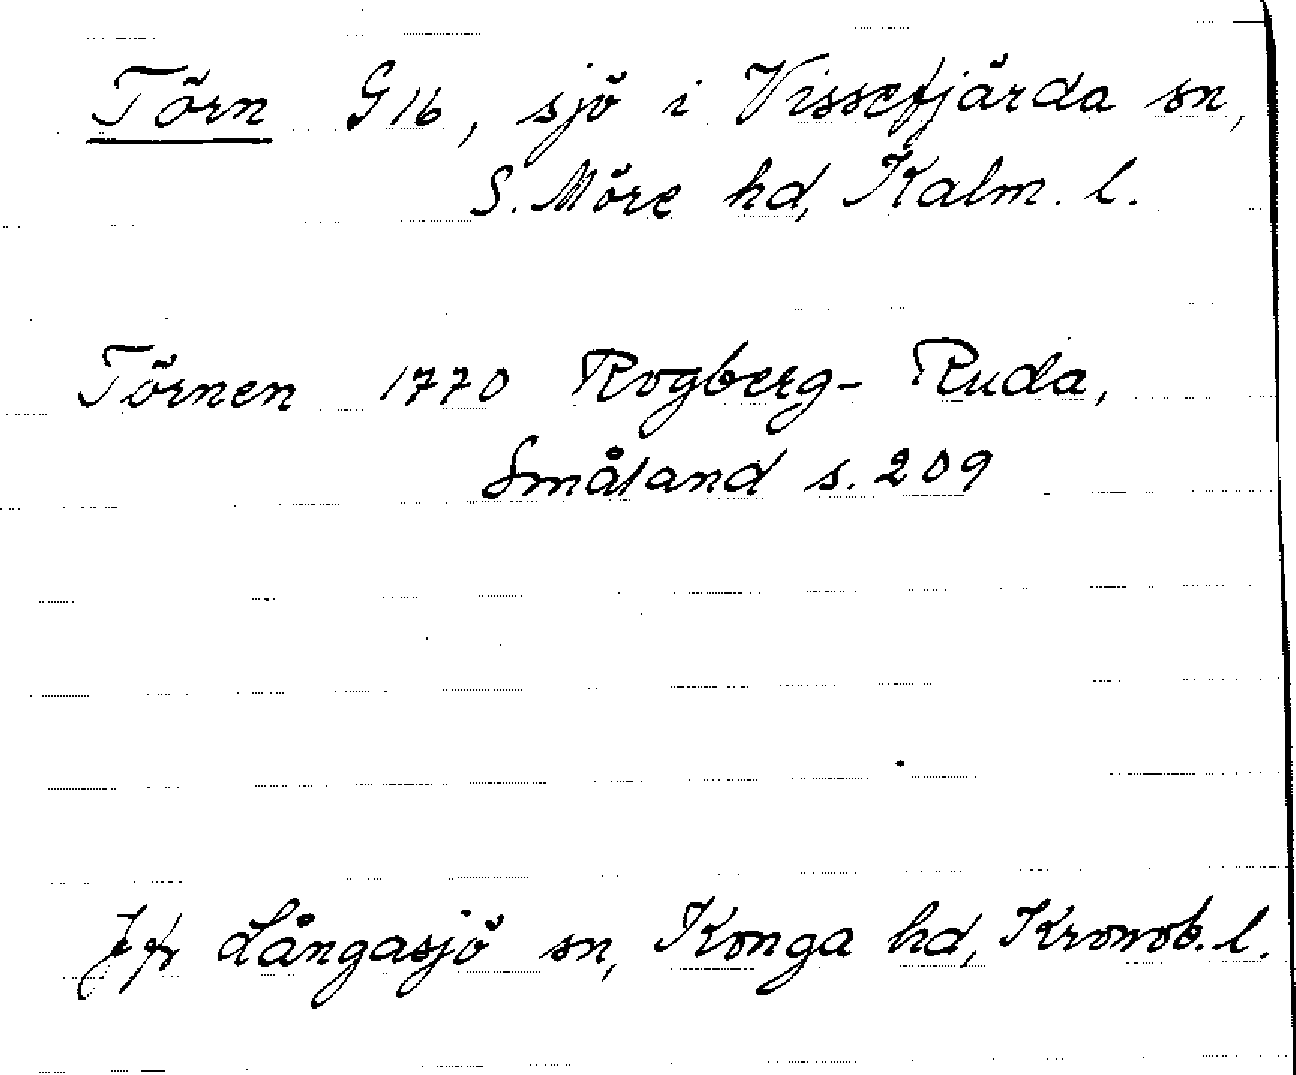 Törn G16, sjö i Vissefjärda sn,
S. Möre hd, Kalm. l.
Törnen 1770 Rogberg-Ruda,
Småland s. 209
Jfr Långasjö sn, Konga hd, Kronob. l.